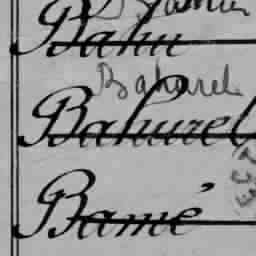 Bahu
Baharel
Bahurel
Bamé